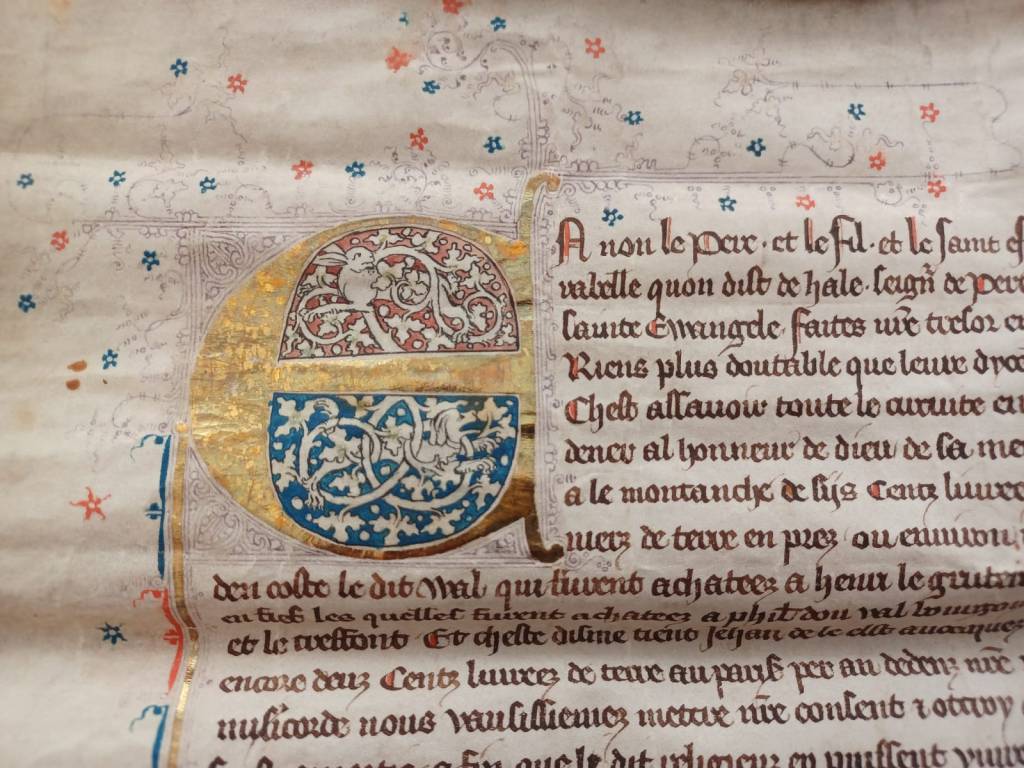 EA non le Pere · et le fil · et le saint es
valxelle quon dist de hale · seigñ de Pere
sainte Ewangele · faites nr̄e tresor en
Riens plus doutable que leure
Chest assavoir toute le
denev al honneur de dieu de sa me
a le montanche de sijs Centz livrez
metz de terre en prez ou environ
den coste le dit Wal qui furent achateez a henri le
en fief les quelles furent achateez a phil't dou val
et le treffont Et cheste disme tient Jehan de le
encore deuz Centz livrez de terre au parisˢ per an dedenz nr̄e
misicorde nous vausissiemez mettre nr̄e consent ⁊ ottroy
que le dit religieux en puissent